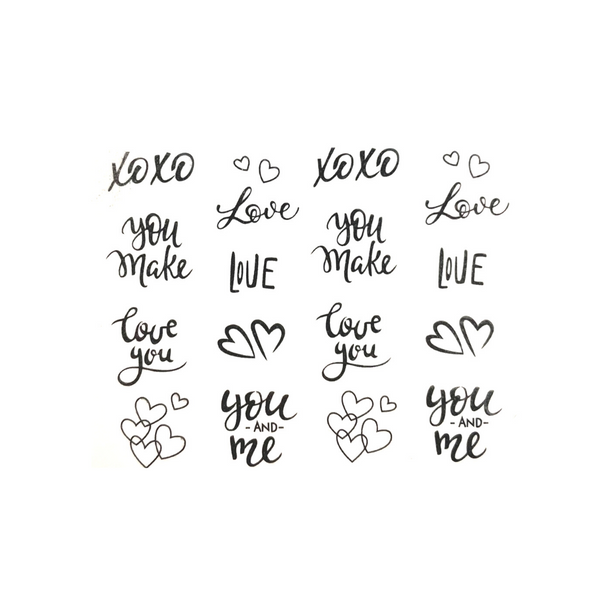 XOXO
you
Make
love
you
Love
LOVE
you
- AND -
me
XOXO
you
Make
love
you
Love
LOVE
you
- AND -
me